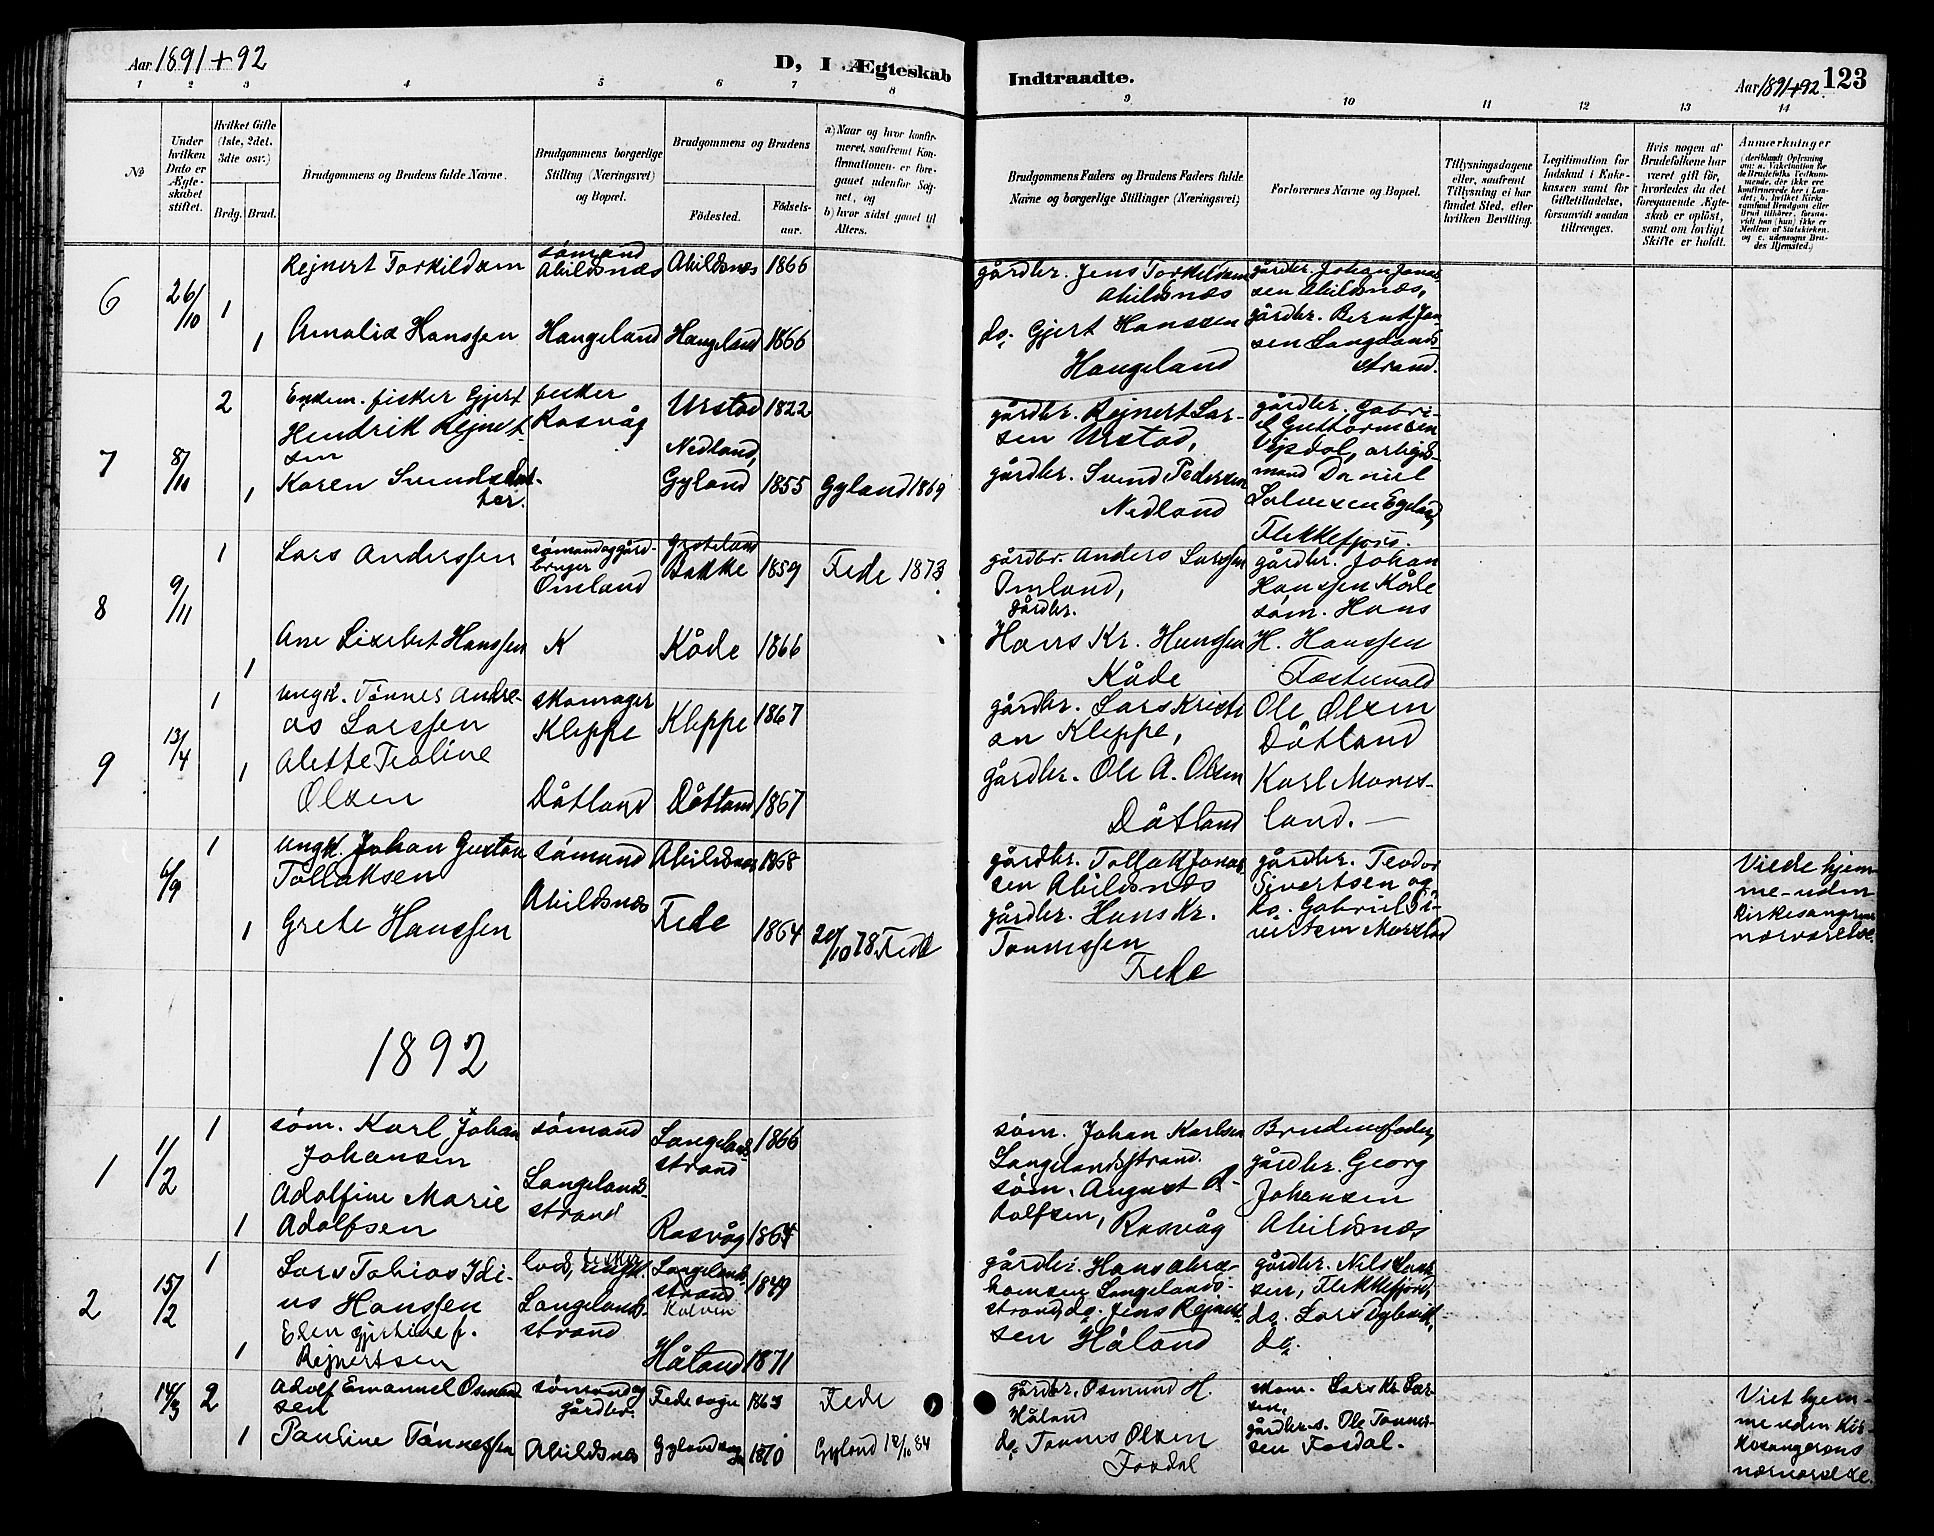 Aar 1891+92
D, I Ægteskab
Indtraadte.
Aar 1891+92. 123
1 2 3 4 5 6 7 8 9 10 11 12 13 14
No
Under
hvilken
Dato er
Ægte-
skabet
stiftet.
Hvilket Gifte
(1ste, 2det,
3die osv.)
Brdg. Brud.
Brudgommens og Brudens fulde Navne.
Brudgommens borgerlige
Stilling (Næringsvei)
og Bopæl.
Brudgommens og Brudens
Födested.
Födsels-
aar.
a) Naar og hvor konfir-
meret, saafremt Kon-
firmationen er fore-
gaaet udenfor Sog-
net, og
b) hvor sidst gaaet til
Alters.
Brudgommens Faders og Brudens Faders fulde
Navne og borgerlige Stillinger (Næringsvei)
Forlovernes Navne og Bopæl.
Tillysningsdagene
eller, saafremt
Tillysning ei har
fundet Sted, efter
hvilken Bevilling.
Legitimation for
Indskud i Enke-
kassen samt for
Giftetilladelse,
forsaavidt saadan
tiltrænges.
Hvis nogen af
Brudefolkene har
været gift för,
hvorledes da det
foregaaende Ægte-
skab er oplöst,
samt om lovligt
Skifte er holdt.
Anmærkninger
6
26/10
1
Rejnert Torkildsen
sømand
Abildsnæs
Abildsnæs 1866
gårdbr. Jens Torkildsen
Abildsnæs
gårdbr. Johan Jonas-
sen Abildsnæs,
1
Amalia Hanssen
Haugeland
Haugeland 1866
do. Gjert Hanssen
Haugeland
gårdbr. Bernt Jan-
sen Langelands-
strand.
7
8/11
2
Enkem. fisker Gjert
Hendrik Rejnert-
sen
fisker
Rasvåg
Urstad 1822
gårdbr. Rejnert Lar-
sen Urstad,
gårdbr. Gabri-
el Guttormsen
Vejsdal, arbejds-
mand Daniel
Salvesen Egeland
Flekkefjord.
1
Karen Svendsdat-
ter.
Nedland,
Gyland 1855
Gyland 1869
gårdbr. Svend Pedersen
Nedland
8
9/11
1
Lars Anderssen
sømand og gård-
bruger
Omland
Bakke 1859
Fede 1873
gårdbr. Anders Larssen
Omland,
gårdbr. Johan
Hanssen Kåde
1
Ane Lisebet Hanssen
K
Kåde 1866
gårdbr.
Hans Kr. Hanssen
Kåde
søm. Hans
H. Hanssen
9
13/4
1
ungk. Tønnes Andre-
as Larssen
skomager
Kleppe
Kleppe 1867
gårdbr. Lars Kristi-
an Kleppe,
Ole Olsen
Dåtland
1
Alette Tealine
Olsen
Dåtland
Dåtland 1867
gårdbr. Ole A. Olsen
Dåtland
Karl Mones-
land. —
6/9
1
ungk. Johan Gustav
Tollaksen
sømand
Abildsnæs
Abildsnæs 1868
gårdbr. Tollak Jonas-
sen Abildsnæs
gårdbr. Teodor
Sivertsen og
do. Gabriel Si-
vertsen
Viede hjem-
me uden
kirkesangerens
nærværelse.
1
Grete Hanssen
Fede
1864
20/10 78. Fede
gårdbr. Hans Kr.
Tønnessen
Fede
1892
1
1/2
1
søm. Karl Johan
Johansen
sømand
Langelands-
strand
Langelands-
strand
1866
søm. Johan Karlsen
Langelandsstrand.
Brudens fader
gårdbr. Georg
Johansen
Abildsnæs
1
Adolfine Marie
Adolfsen
Rasvåg 1864
søm. August A-
dolfsen, Rasvåg
2
15/2
1
Lars Tobias Idi-
us Hanssen
Langelands-
strand
Langelands-
strand
1849
gårdbr. Hans Abra-
hamsen Langelands-
strand, do. Jens Rejnert-
sen Håland
gårdbr. Nils
sen, Flekkefjord,
do. Lars
do.
1
Elen Gjertine f.
Rejnertsen
Håland 1871
14/3
2
Adolf Emanuel Osmund-
sen
sømand og
gårdbr.
Fede sogn 1863
Fede
gårdbr. Osmund H.
Håland
skom. Lars Kr. Lar-
sen,
Viet hjem-
me uden Kir-
kesangerens
nærværelse.
1
Pauline Tønnessen
Abildsnæs
Gyland sogn
1870
Gyland 12/10 84
do. Tønnes Olsen
Fosdal
gårdbr. Ole Tønnes-
sen Fosdal.